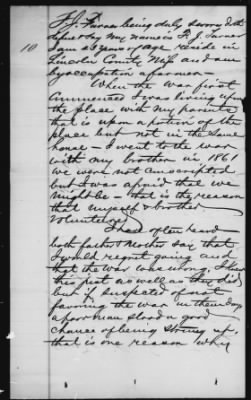 F. J. Turner being duly sworn & did
depose & say My name is F. J. Turner
10
I am 43 years of age reside in
Lincoln County Miss and am
by occupation a farmer—
When the war first
commenced I was living upon
the place with my parents
that is upon a portion of the
place but not in the same
house — I went to the war
with my brother in 1861
we were not conscripted
but I was afraid that we
might be — that is the reason
that myself & brother
volunteered
I had often heard
both father & Mother say that
I would regret going and
that the war was wrong. I knew
this just as well as they did
but if suspected of not
favoring the war in them days
a poor man stood a good
chance of being strung up,
that is one reason why